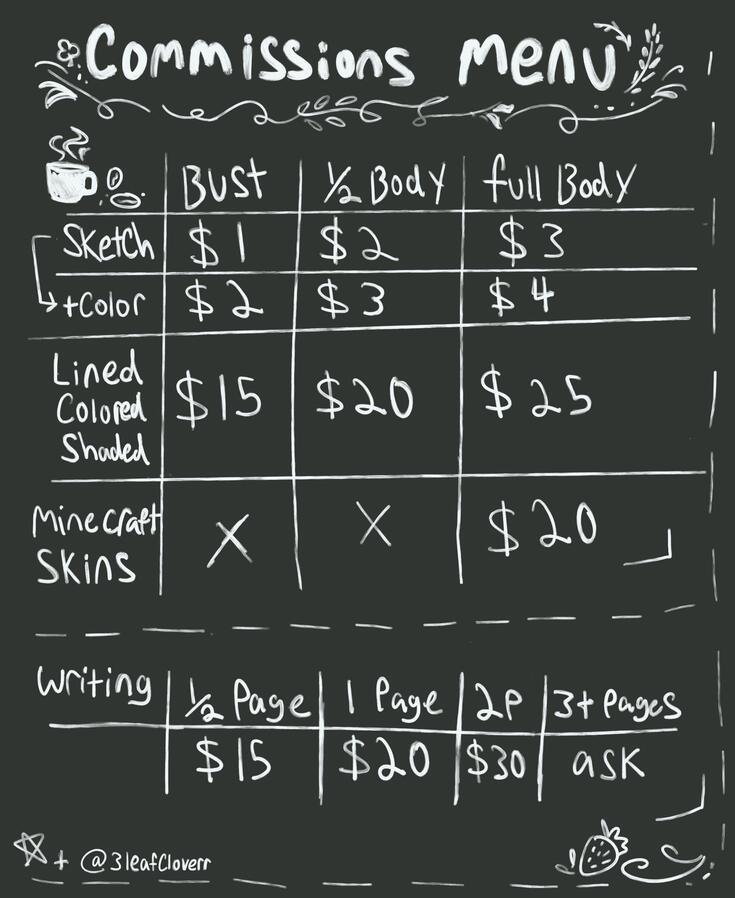 Commissions Menu
Bust ½ Body full Body
Sketch $1 $2 $3
+Color $2 $3 $4
Lined
Colored
Shaded
$15 $20 $25
Minecraft
Skins
X X $20
Writing ½ Page 1 Page 2P 3+ Pages
$15 $20 $30 ask
+ @3leafCloverr